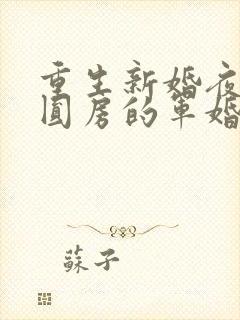 重生新婚夜
圆房的军婚
蘇子